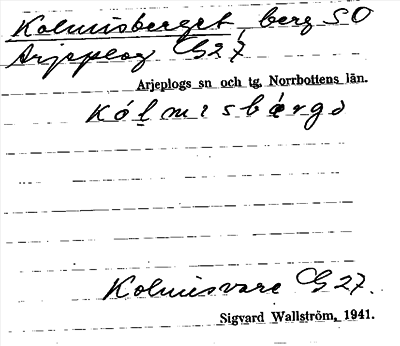 Kolmisberget, berg SO
Arjeplog G 27
Arjeplogs sn och tg, Norrbottens län.
Kólmisbärgə
Kolmisvare G 27.
Sigvard Wallström, 1941.